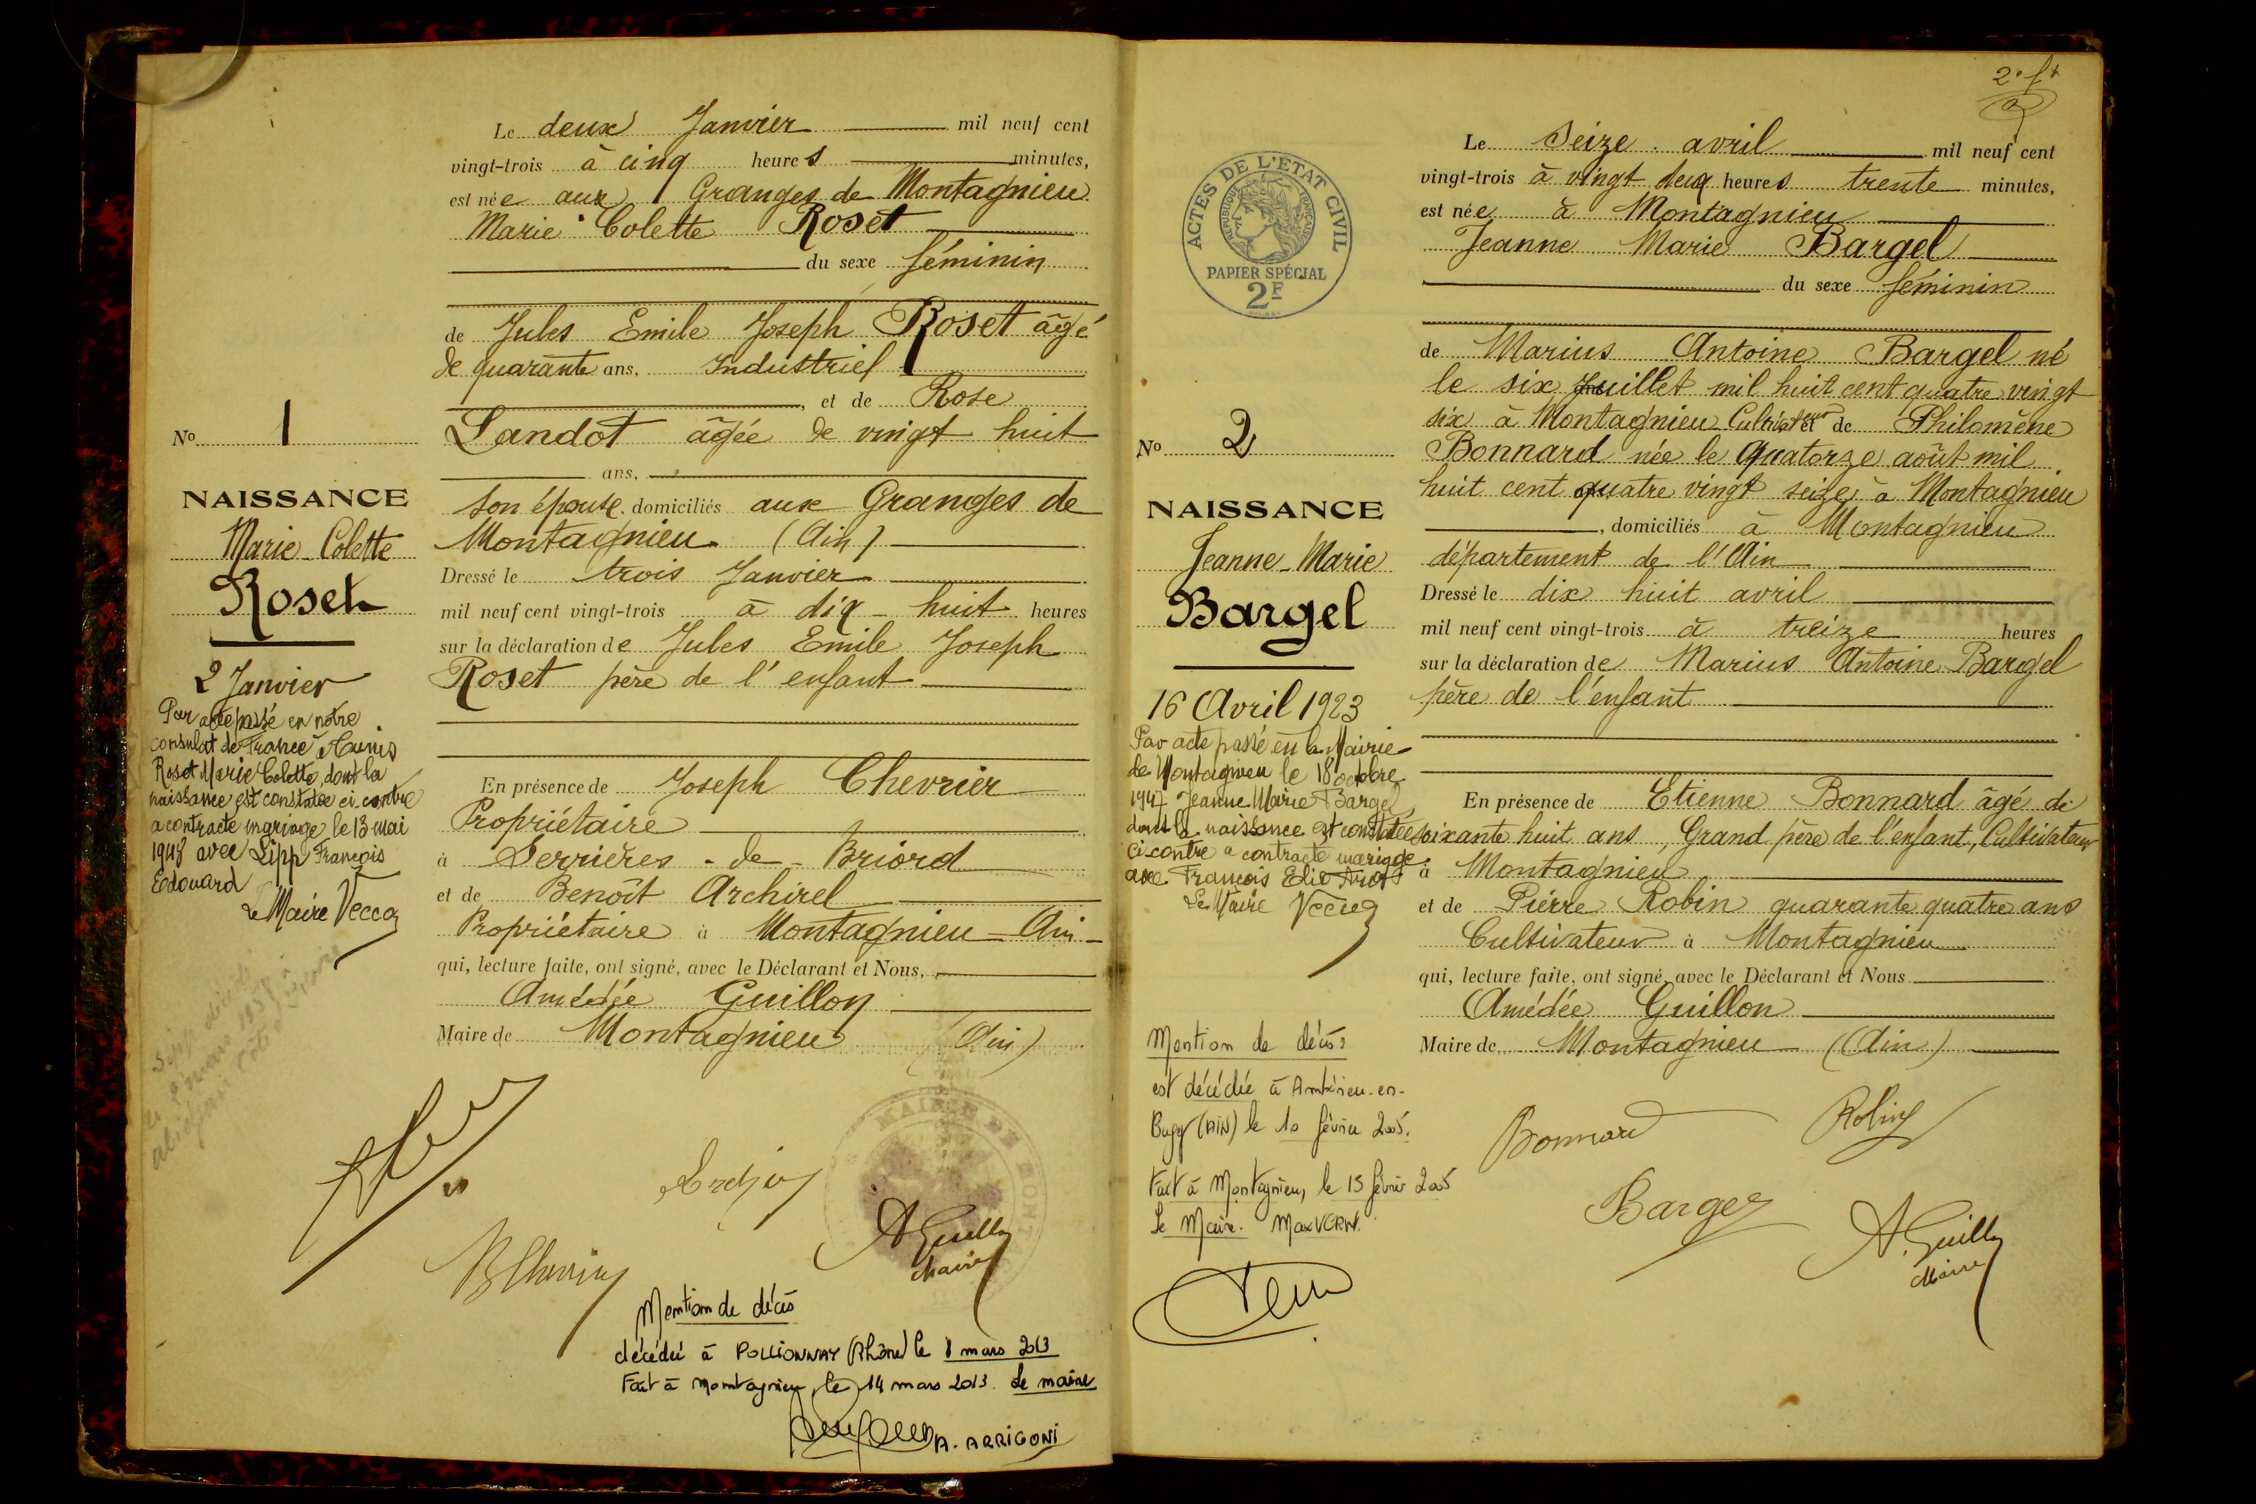 Le deux Janvier mil neuf cent
vingt-trois à cinq heures minutes,
est née aux Granges de Montagnieu
Marie Colette Roset
du sexe féminin
de Jules Emile Joseph Roset âgé
de quarante ans, Industriel
, et de Rose
Landot âgée de vingt huit
ans,
son épouse, domiciliés aux Granges de
Montagnieu (Ain)
Dressé le trois Janvier
mil neuf cent vingt-trois à dix-huit heures
sur la déclaration de Jules Emile Joseph
Roset père de l'enfant
En présence de Joseph Chevrier
Propriétaire
à Serrières-de-Briord
et de Benoît Archirel
Propriétaire à Montagnieu - Ain -
qui, lecture faite, ont signé, avec le Déclarant et Nous,
Amédée Guillon
Maire de Montagnieu (Ain)
No 1
NAISSANCE
Marie-Colette
Roset
2 Janvier
Par acte passé en notre
consulat de France à Tunis
Roset Marie Colette, dont la
naissance est constatée ci-contre
a contracté mariage le 13 mai
1947 avec Lipp François
Edouard
Le Maire Vecco
A Guillon
Maire
Mention de décès
décédée à POLLIONNAY (Rhône) le 8 mars 2013
Fait à Montagnieu, le 14 mars 2013. Le maire
A. ARRIGONI
2e ft
ACTES DE L'ETAT CIVIL
REPUBLIQUE FRANÇAISE
PAPIER SPÉCIAL
2F
Le Seize avril mil neuf cent
vingt-trois à vingt deux heures trente minutes,
est née à Montagnieu
Jeanne Marie Bargel
du sexe féminin
de Marius Antoine Bargel né
le six juillet mil huit cent quatre vingt
six à Montagnieu Cultivateur et de Philomène
Bonnard née le quatorze août mil
huit cent quatre vingt seize à Montagnieu
, domiciliés à Montagnieu
département de l'Ain
Dressé le dix huit avril
mil neuf cent vingt-trois à treize heures
sur la déclaration de Marius Antoine Bargel
père de l'enfant
En présence de Etienne Bonnard âgé de
soixante huit ans, Grand père de l'enfant, Cultivateur
à Montagnieu
et de Pierre Robin quarante quatre ans
Cultivateur à Montagnieu
qui, lecture faite, ont signé, avec le Déclarant et Nous
Amédée Guillon
Maire de Montagnieu (Ain)
No 2
NAISSANCE
Jeanne-Marie
Bargel
16 Avril 1923
Par acte passé en la Mairie
de Montagnieu le 18 octobre
1947 Jeanne Marie Bargel
dont la naissance est constatée
ci contre a contracté mariage
avec François Elie
Le Maire Vecco
Mention de décès:
est décédée à Ambérieu-en-
Bugey (AIN) le 10 février 2005.
Fait à Montagnieu, le 15 février 2005
Le Maire. Max VERN.
Bonnard
Robin
Bargel
A. Guillon
Maire